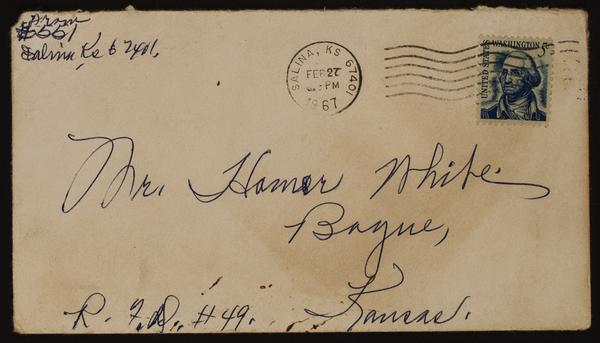 #551
Salina Ks 67401,
SALINA, KS 67401
FEB 27
PM
1967
UNITED STATES
WASHINGTON 5c
Mr. Homer White
Bogue,
R. F. D. #49. Kansas.